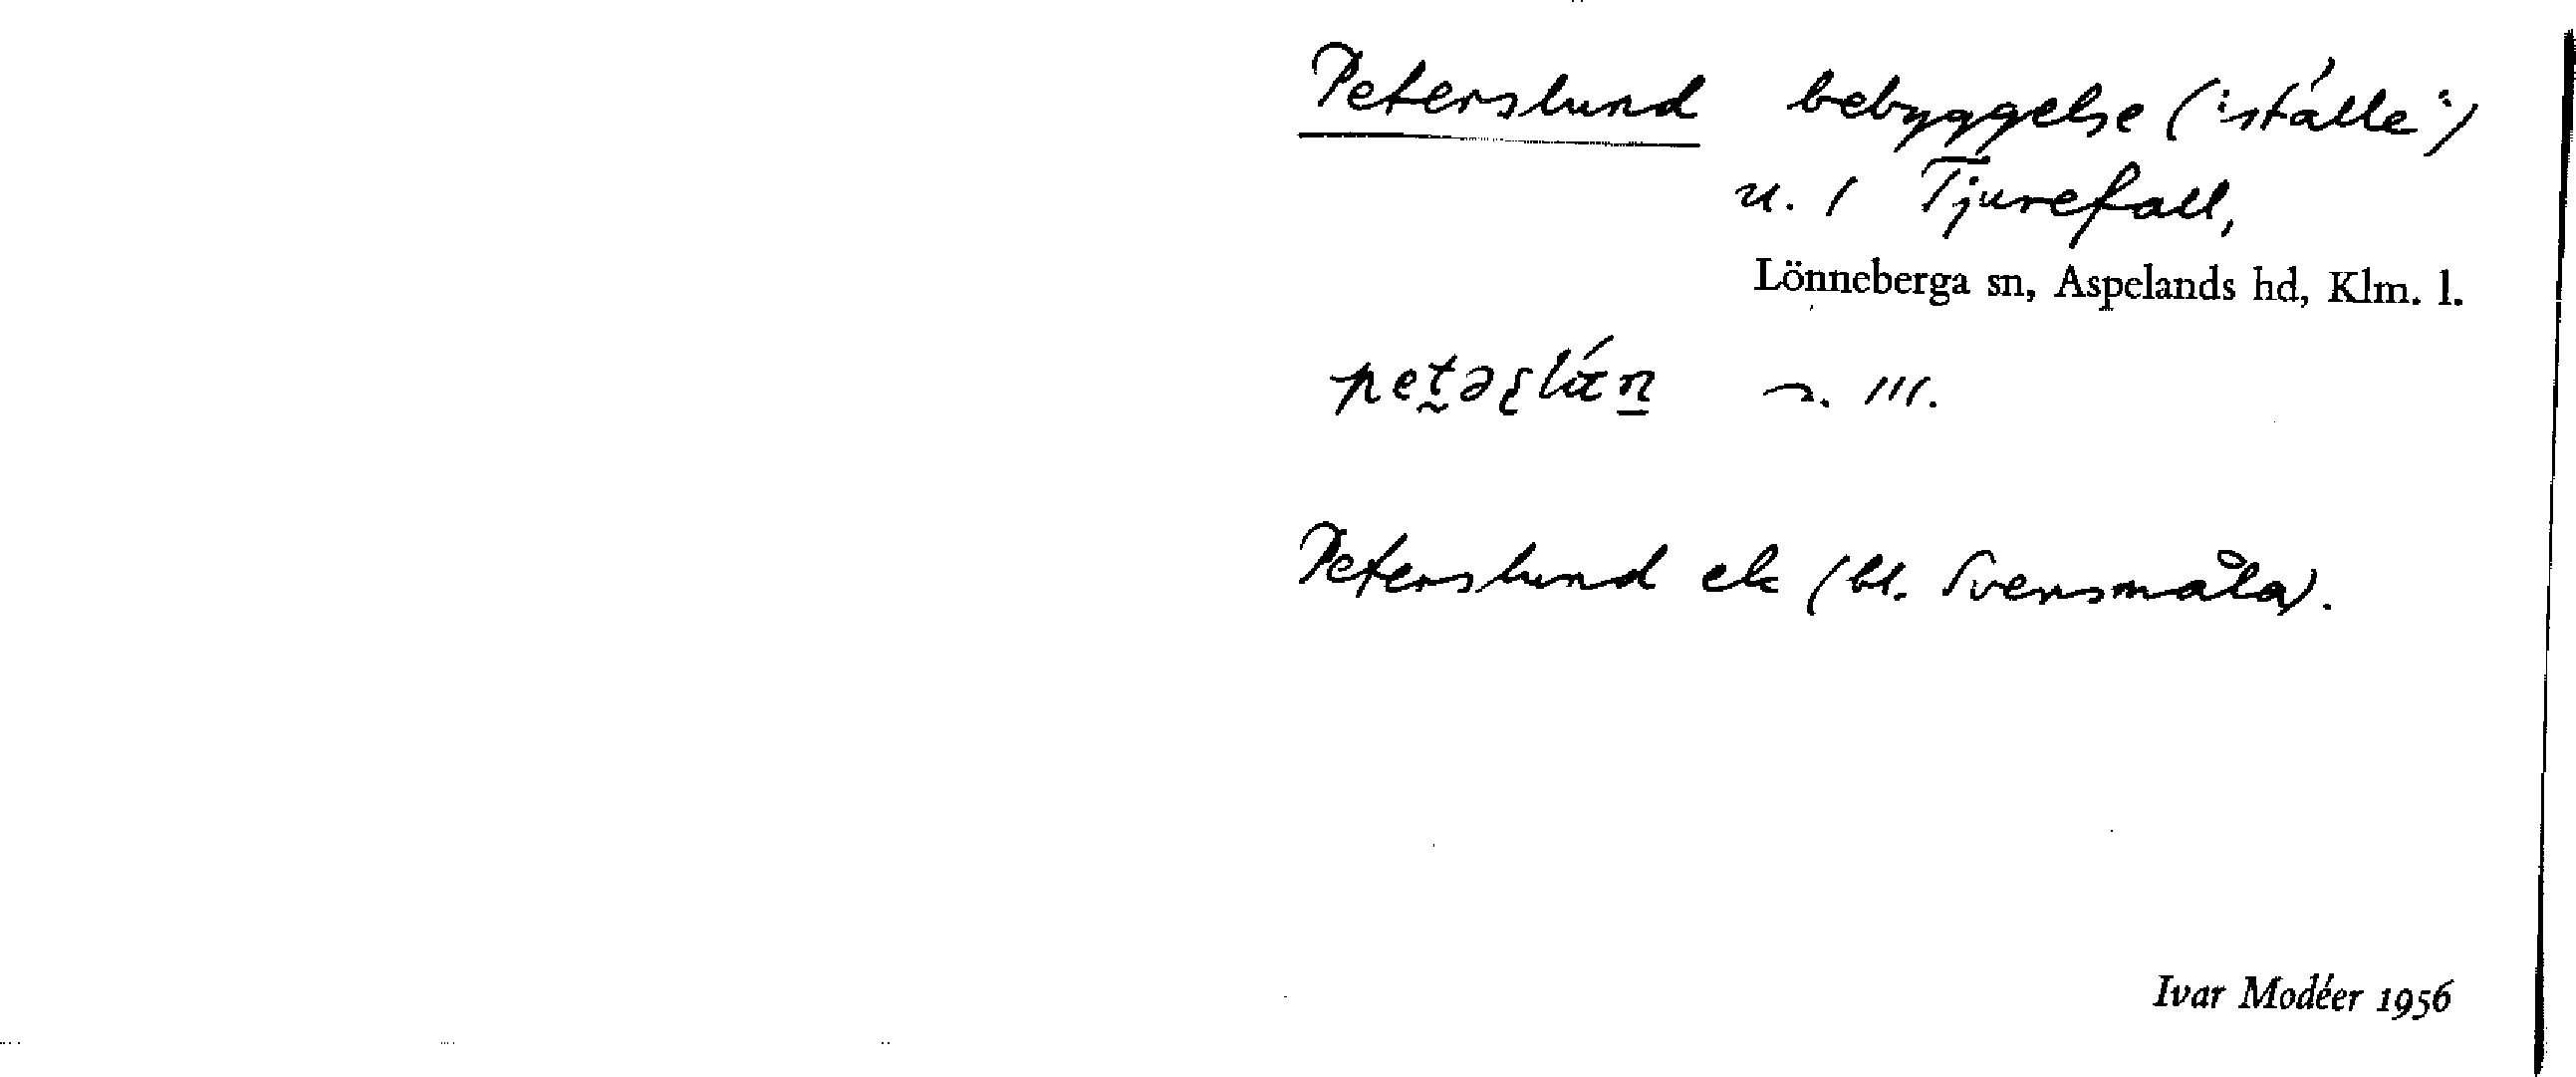 Peterslund bebyggelse ("ställe")
u. 1 Tjurefall,
Lönneberga sn, Aspelands hd, Klm. l.
Peterslund ek (bl. Svensmåla).
Ivar Modéer 1956